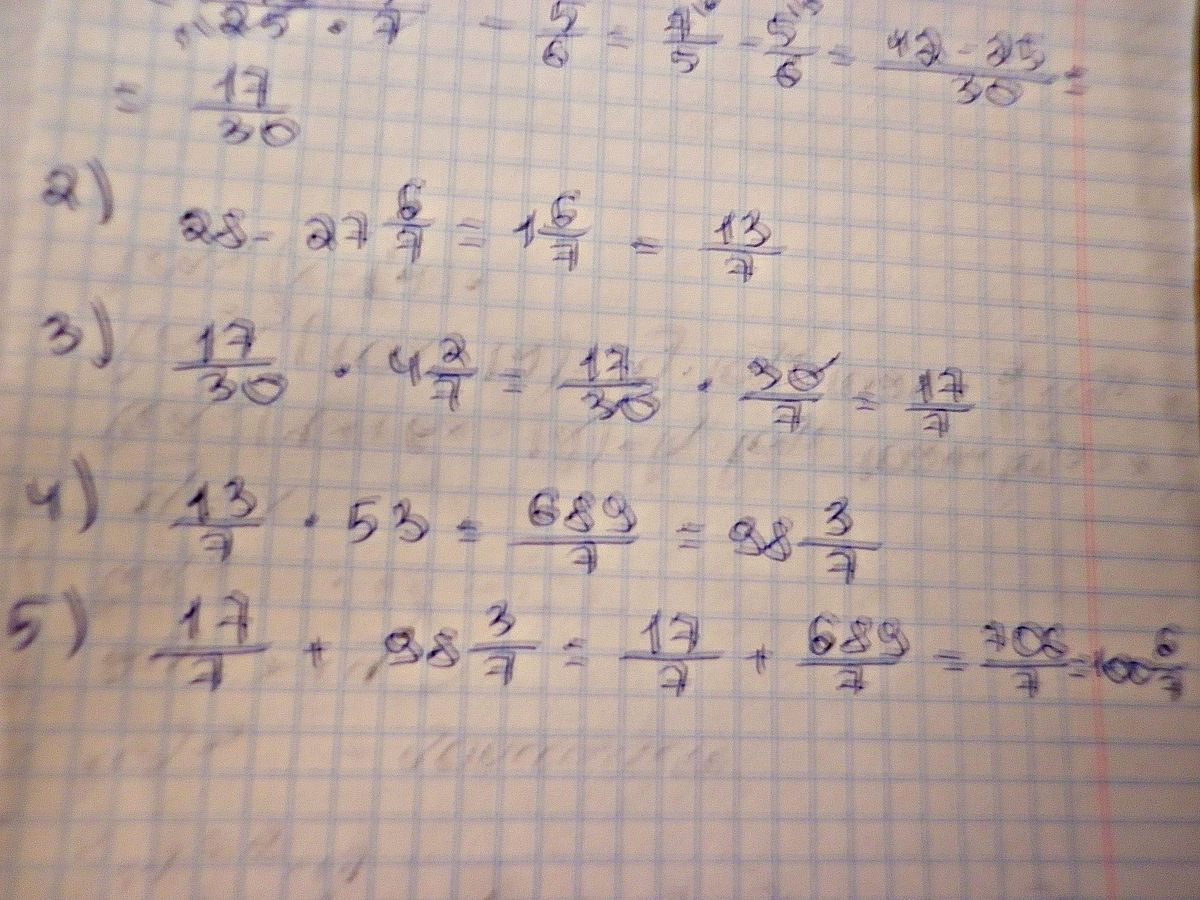 25 · 7 - 5/6 = 7/5 - 5/6 = 42 - 25/30 =
= 17/30
2) 28 - 27 6/7 = 1 6/7 = 13/7
3) 17/30 · 4 2/7 = 17/30 · 30/7 = 17/7
4) 13/7 · 53 = 689/7 = 98 3/7
5) 17/7 + 98 3/7 = 17/7 + 689/7 = 706/7 = 100 6/7